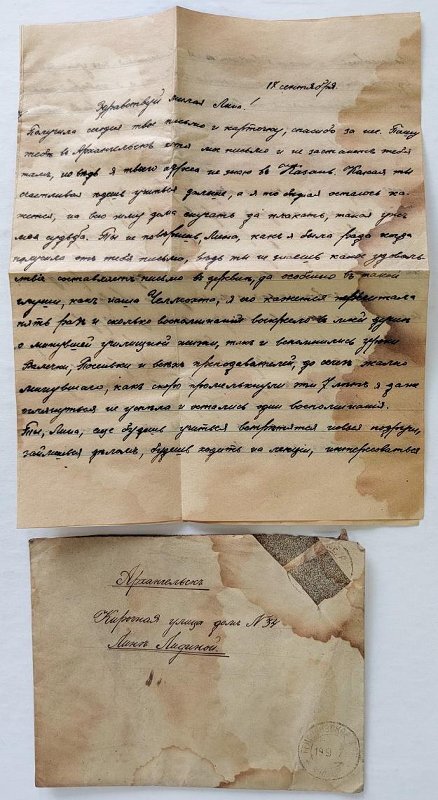 17 сентября.
Здравствуй милая Лина!
Получила сегодня твое письмо и карточку, спасибо за нее. Пишу
тебѣ въ Архангельскъ хотя мое письмо и не застанетъ тебя
тамъ, но вѣдь я твоего адреса не знаю въ Казань. Какая ты
счастливая ѣдешь учиться дальше, а я то бѣдная осталось ка-
жется, на всю зиму дома скучать да плакать, такая ужъ
моя судьба. Ты не повѣришь, Лина, какъ я была рада когда
получила отъ тебя письмо, вѣдь ты не знаешь какое удоволь-
ствіе составляетъ письмо въ деревнѣ, да особенно въ такой
глуши, какъ наша я его кажется перечитала
пять разъ и сколько воспоминаній воскресло въ моей душѣ
о минувшей училищной жизни, такъ и вспомнились уроки
и всѣхъ преподавателей, до слезъ жалко
минувшаго, какъ скоро промелькнули эти 7 лѣтъ я даже
оглянуться не успѣла и остались одни воспоминанія.
Ты, Лина, еще будешь учиться встрѣтятся новыя подруги,
займешься дѣломъ, будешь ходить на лекціи, интересоваться
Архангельскъ
улица домъ N 34
Линѣ Лидиной.